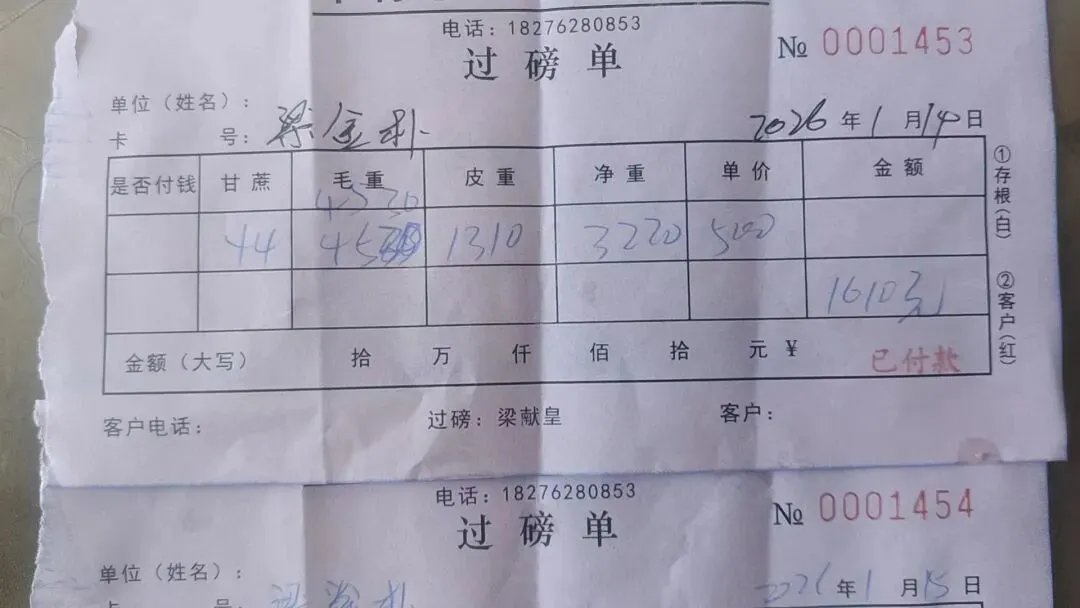 电话：18276280853
过磅单 № 0001453
单位（姓名）：
卡 号：梁金朴 2026年1月14日
是否付钱 甘蔗 毛重 皮重 净重 单价 金额
4530
44 1310 3220 500
1610元
金额（大写） 拾 万 仟 佰 拾 元 ¥ 已付款
客户电话： 过磅：梁献皇 客户：
①存根(白) ②客户(红)
电话：18276280853
过磅单 № 0001454
单位（姓名）：
2026年1月15日